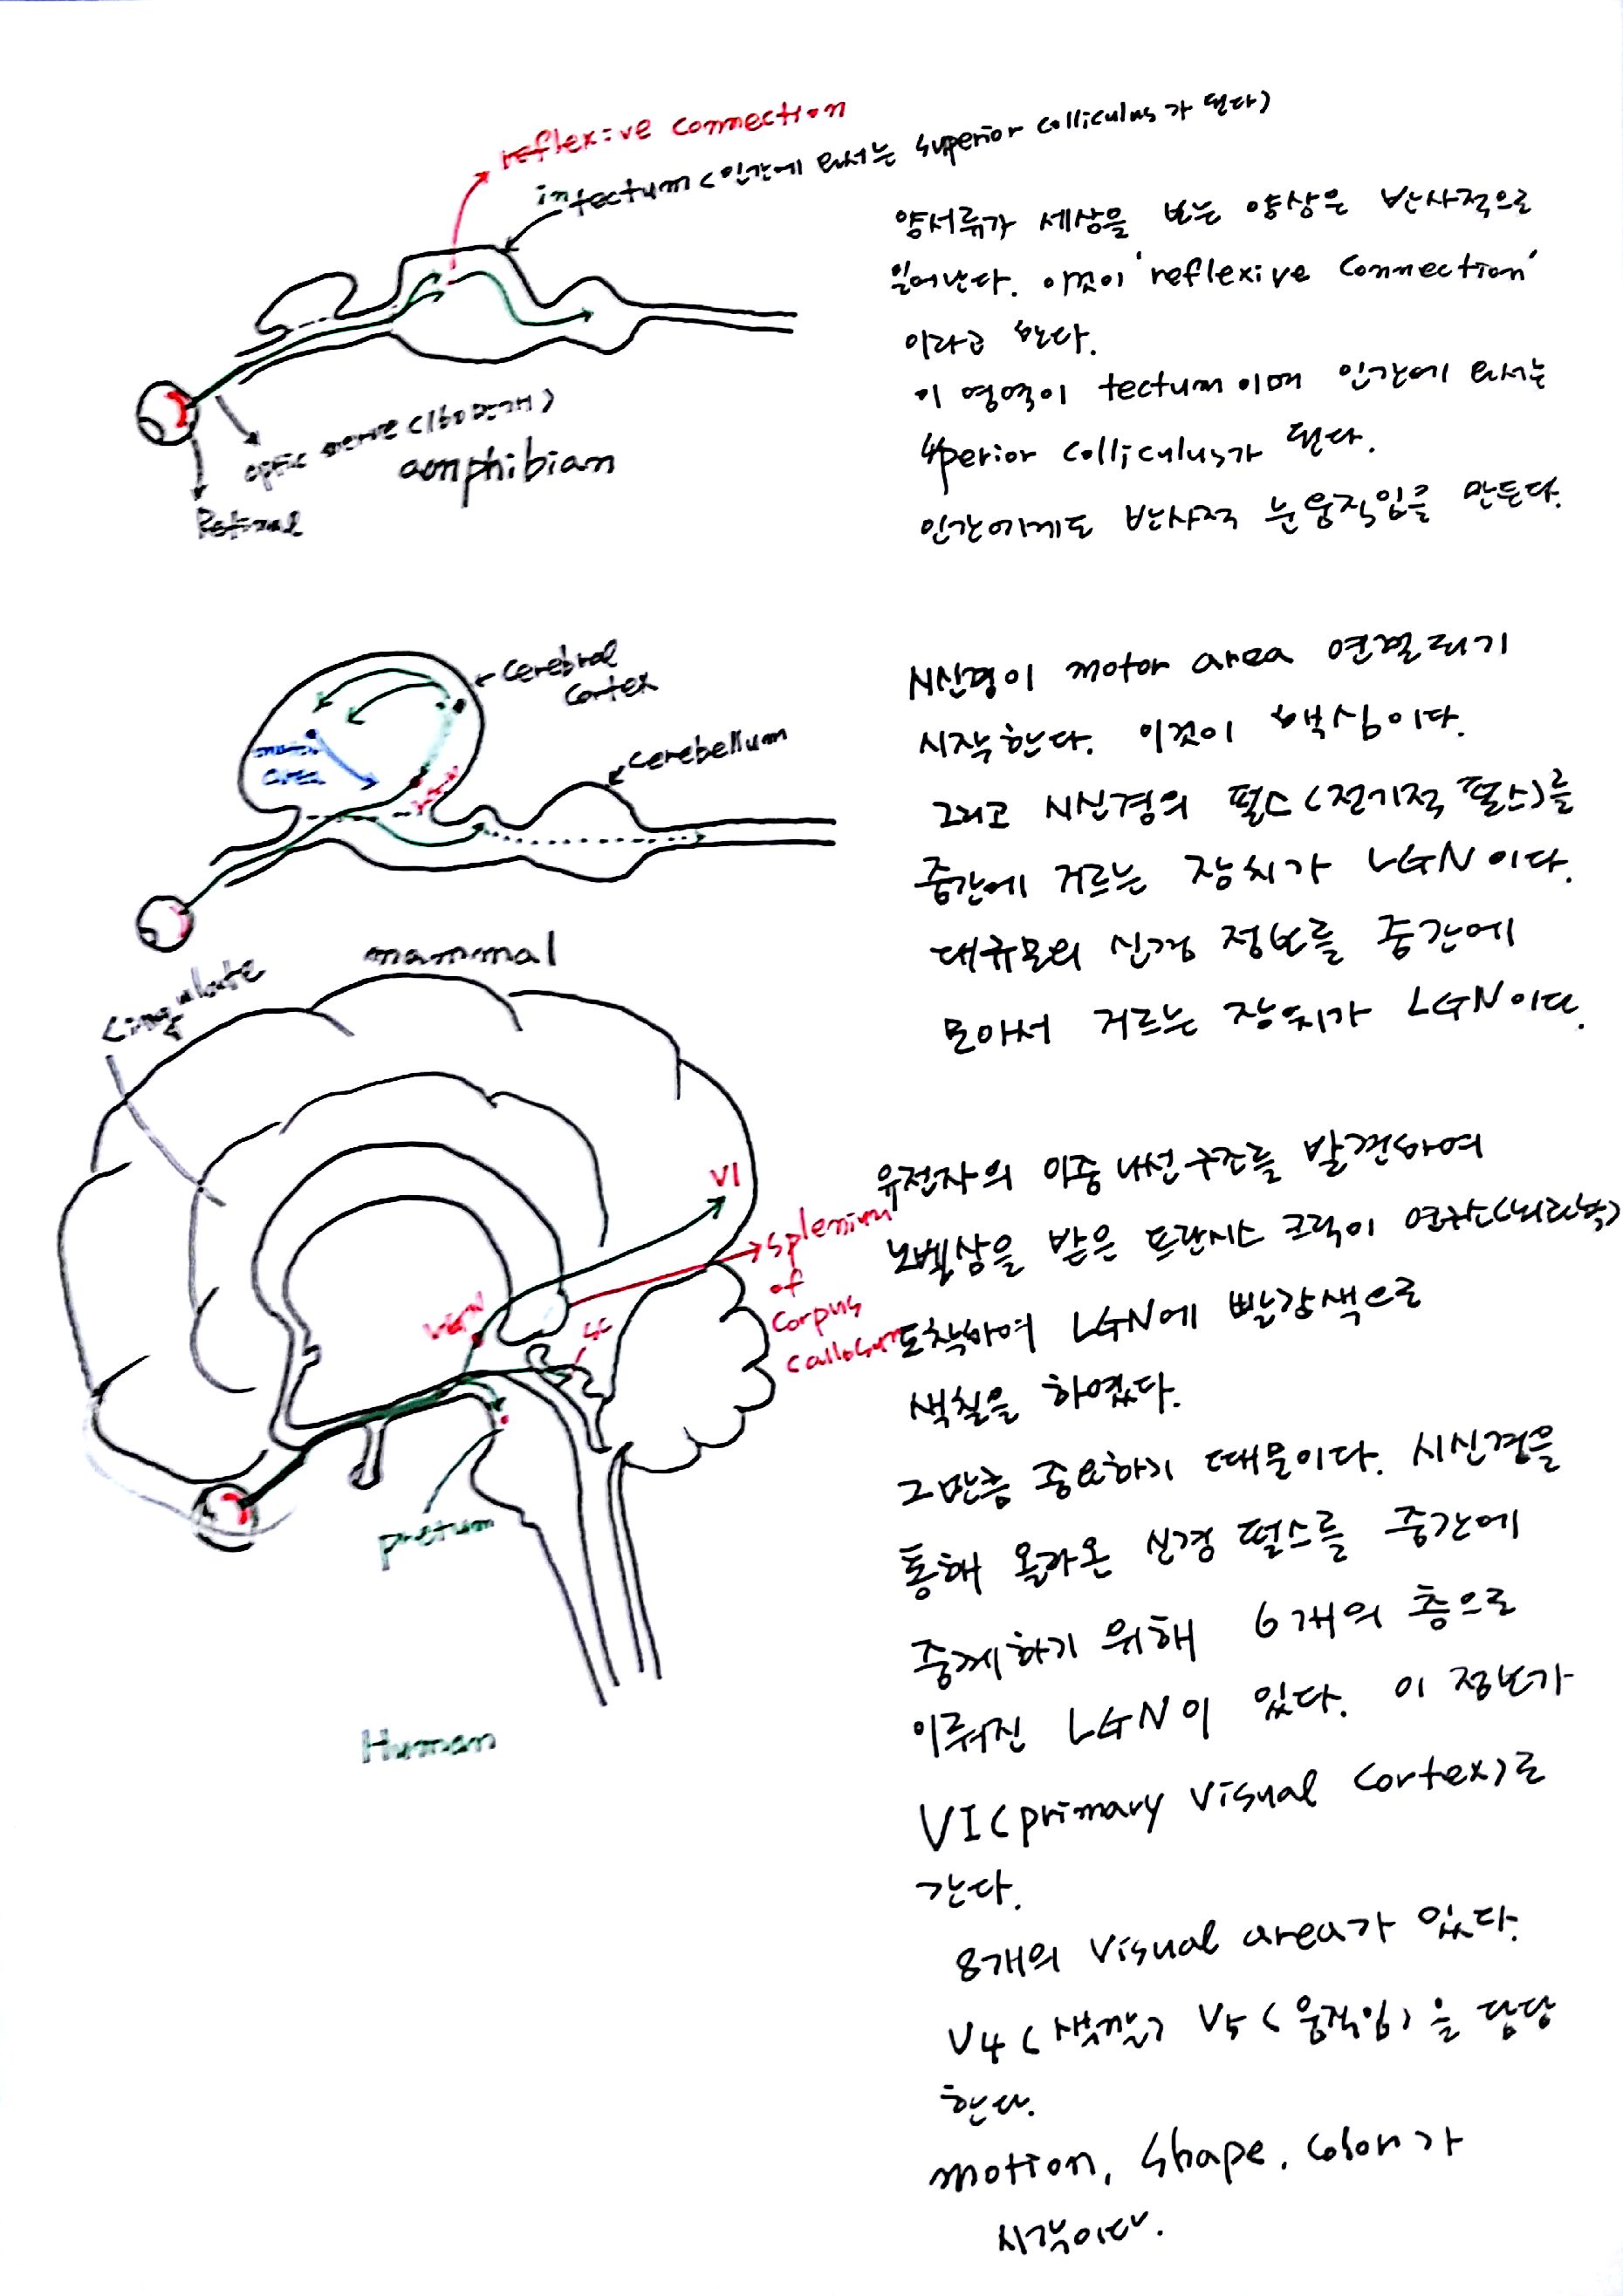 reflexive connection
in tectum (인간에 와서는 superior colliculus가 된다)
optic nerve (160만개)
amphibian
Retinal
양서류가 세상을 보는 양상은 반사적으로
일어난다. 이것이 'reflexive connection'
이라고 한다.
이 영역이 tectum이며 인간에 와서는
superior colliculus가 된다.
인간에게도 반사적 눈움직임을 만든다.
cerebral
cortex
motor
area
LGN
cerebellum
mammal
시신경이 motor area 연결되기
시작한다. 이것이 핵심이다.
그리고 시신경의 펄스(전기적 펄스)를
중간에 거르는 장치가 LGN이다.
대규모의 신경 정보를 중간에
모아서 거르는 장치가 LGN이다.
Cingulate
V1
splenium
of
corpus
callosum
LGN
SC
pretum
Human
유전자의 이중 나선구조를 발견하여
노벨상을 받은 프란시스 크릭이 말년에
도착하여 LGN에 빨강색으로
색칠을 하였다.
그만큼 중요하기 때문이다. 시신경을
통해 올라온 신경 펄스를 중간에
중계하기 위해 6개의 층으로
이뤄진 LGN이 있다. 이 정보가
V1(primary visual cortex)로
간다.
8개의 visual area가 있다.
V4 (색깔) V5 (움직임)을 담당
한다.
motion, shape, color가
시각이다.